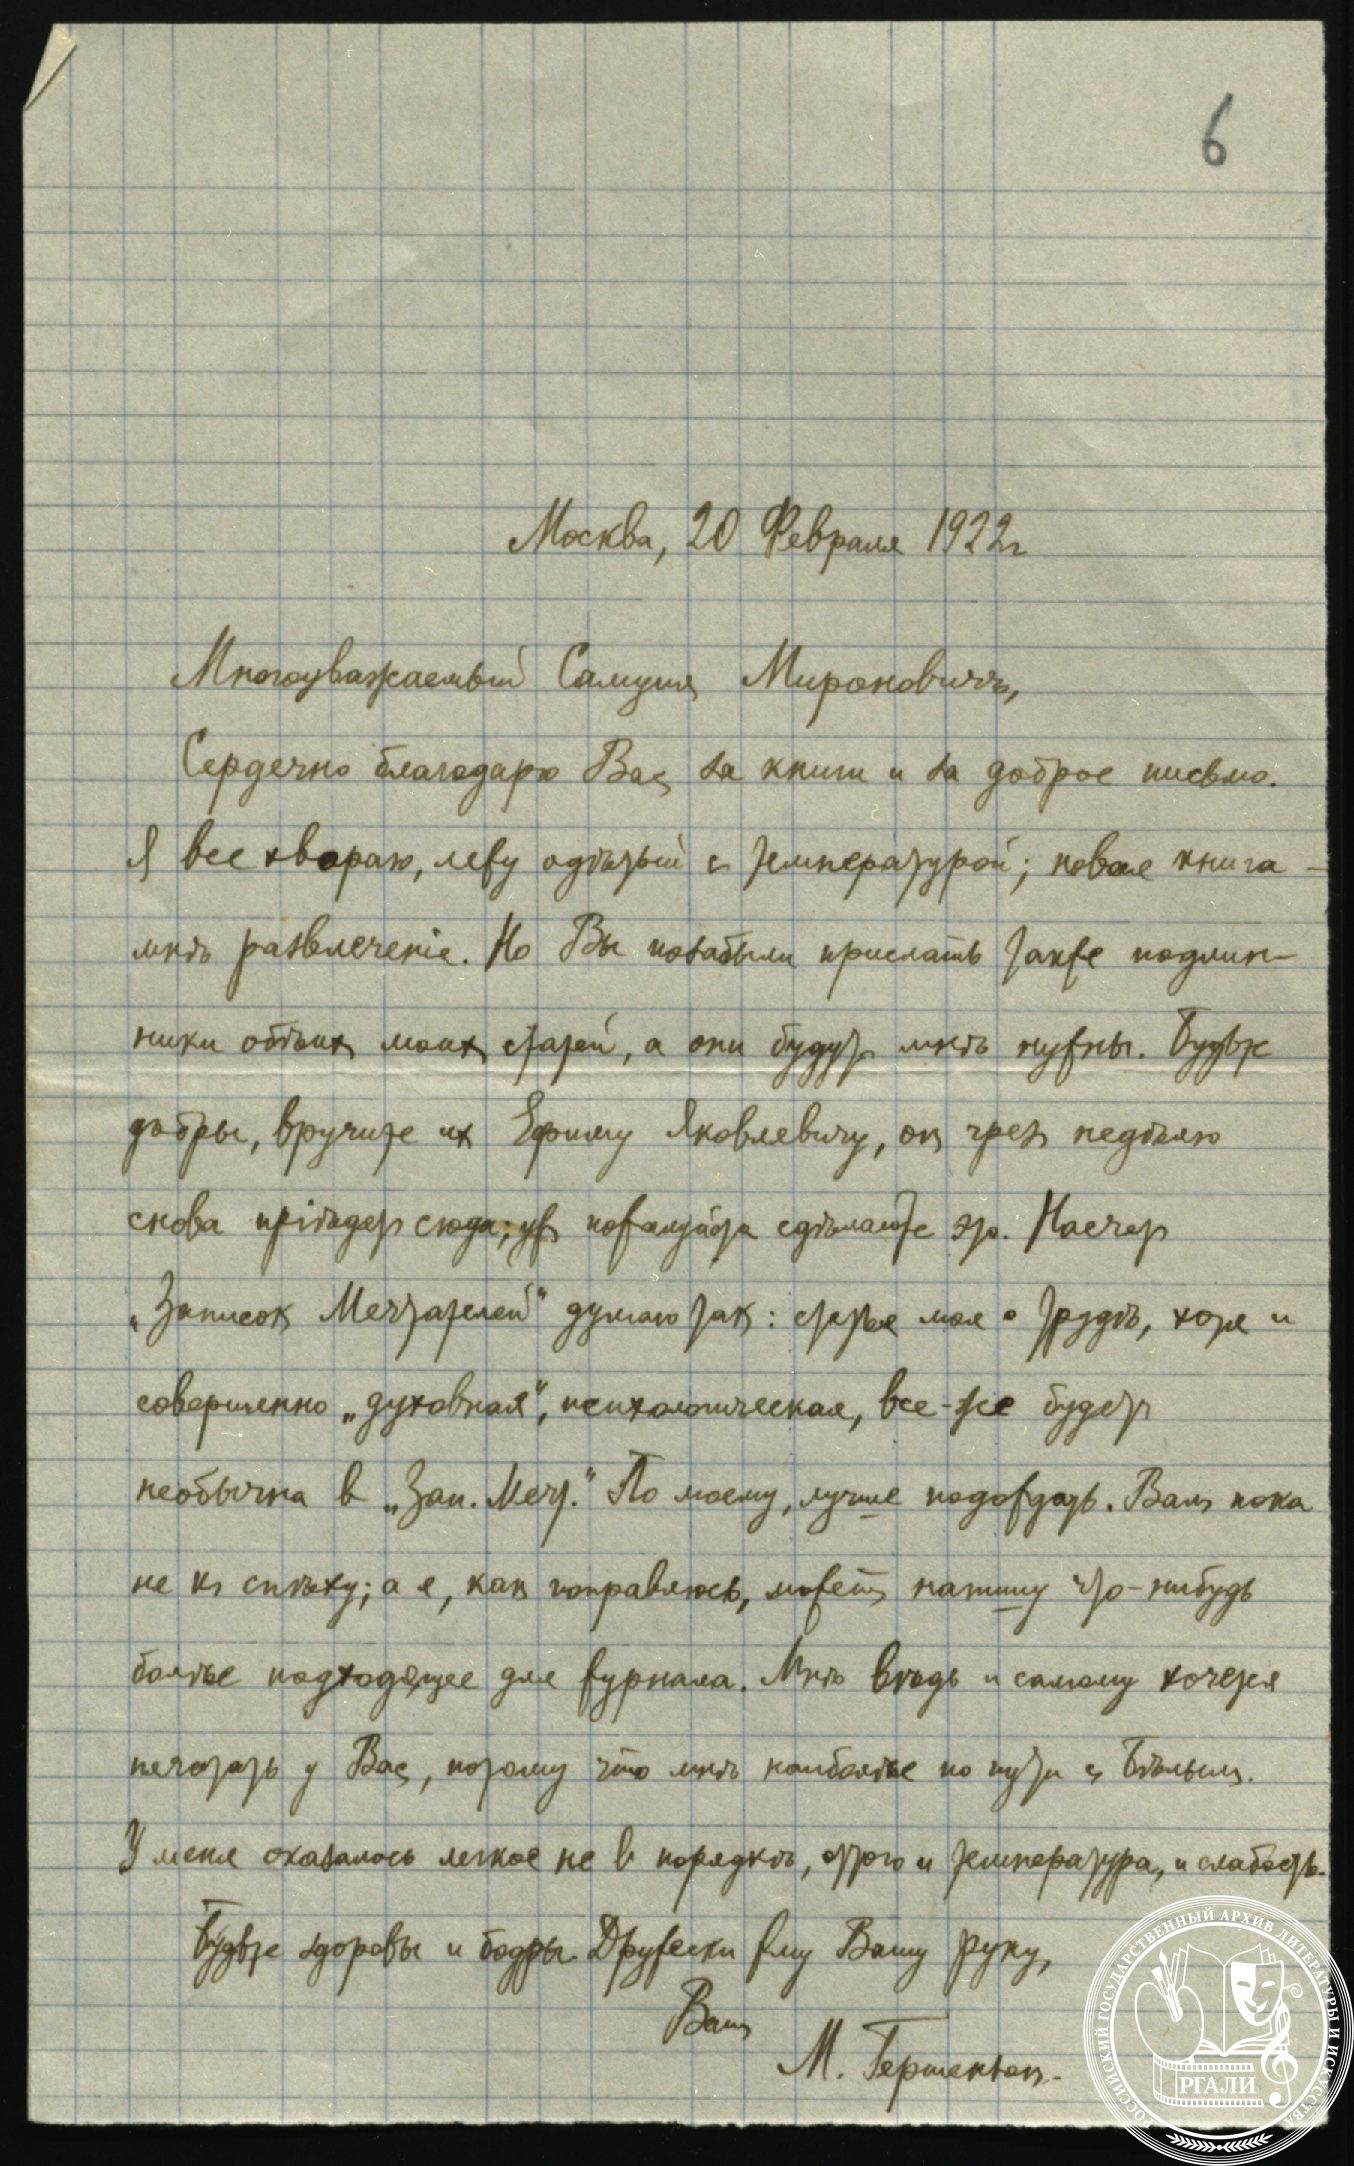 6
Москва, 20 Февраля 1922 г
Многоуважаемый Самуил Миронович,
Сердечно благодарю Вас за книги и за доброе письмо.
Я все хвораю, лежу одѣтый с температурой; новая книга –
мнѣ развлеченіе. Но Вы позабыли прислать также подлин-
ники обѣихъ моихъ статей, а они будутъ мнѣ нужны. Будьте
добры, вручите их Ефиму Яковлевичу, онъ чрезъ недѣлю
снова пріѣдетъ сюда; ужъ пожалуйста сдѣлайте это. На счет
„Записокъ Мечтателей" думаю такъ: статья моя о трудѣ, хотя и
совершенно „духовная", психологическая, все-же будетъ
необычна в „Зап. Меч." По моему, лучше подождать. Вамъ пока
не къ спѣху; а я, какъ поправлюсь, может, напишу что-нибудь
болѣе подходящее для журнала. Мнѣ вѣдь и самому хочется
печатать у Вас, потому что мнѣ наиболѣе по пути съ Бѣлымъ.
У меня оказалось легкое не в порядкѣ, оттого и температура, и слабость.
Будьте здоровы и бодры. Дружески жму Вашу руку,
Вашъ
М. Гершензон.
РОССИЙСКИЙ ГОСУДАРСТВЕННЫЙ АРХИВ ЛИТЕРАТУРЫ И ИСКУССТВА
РГАЛИ